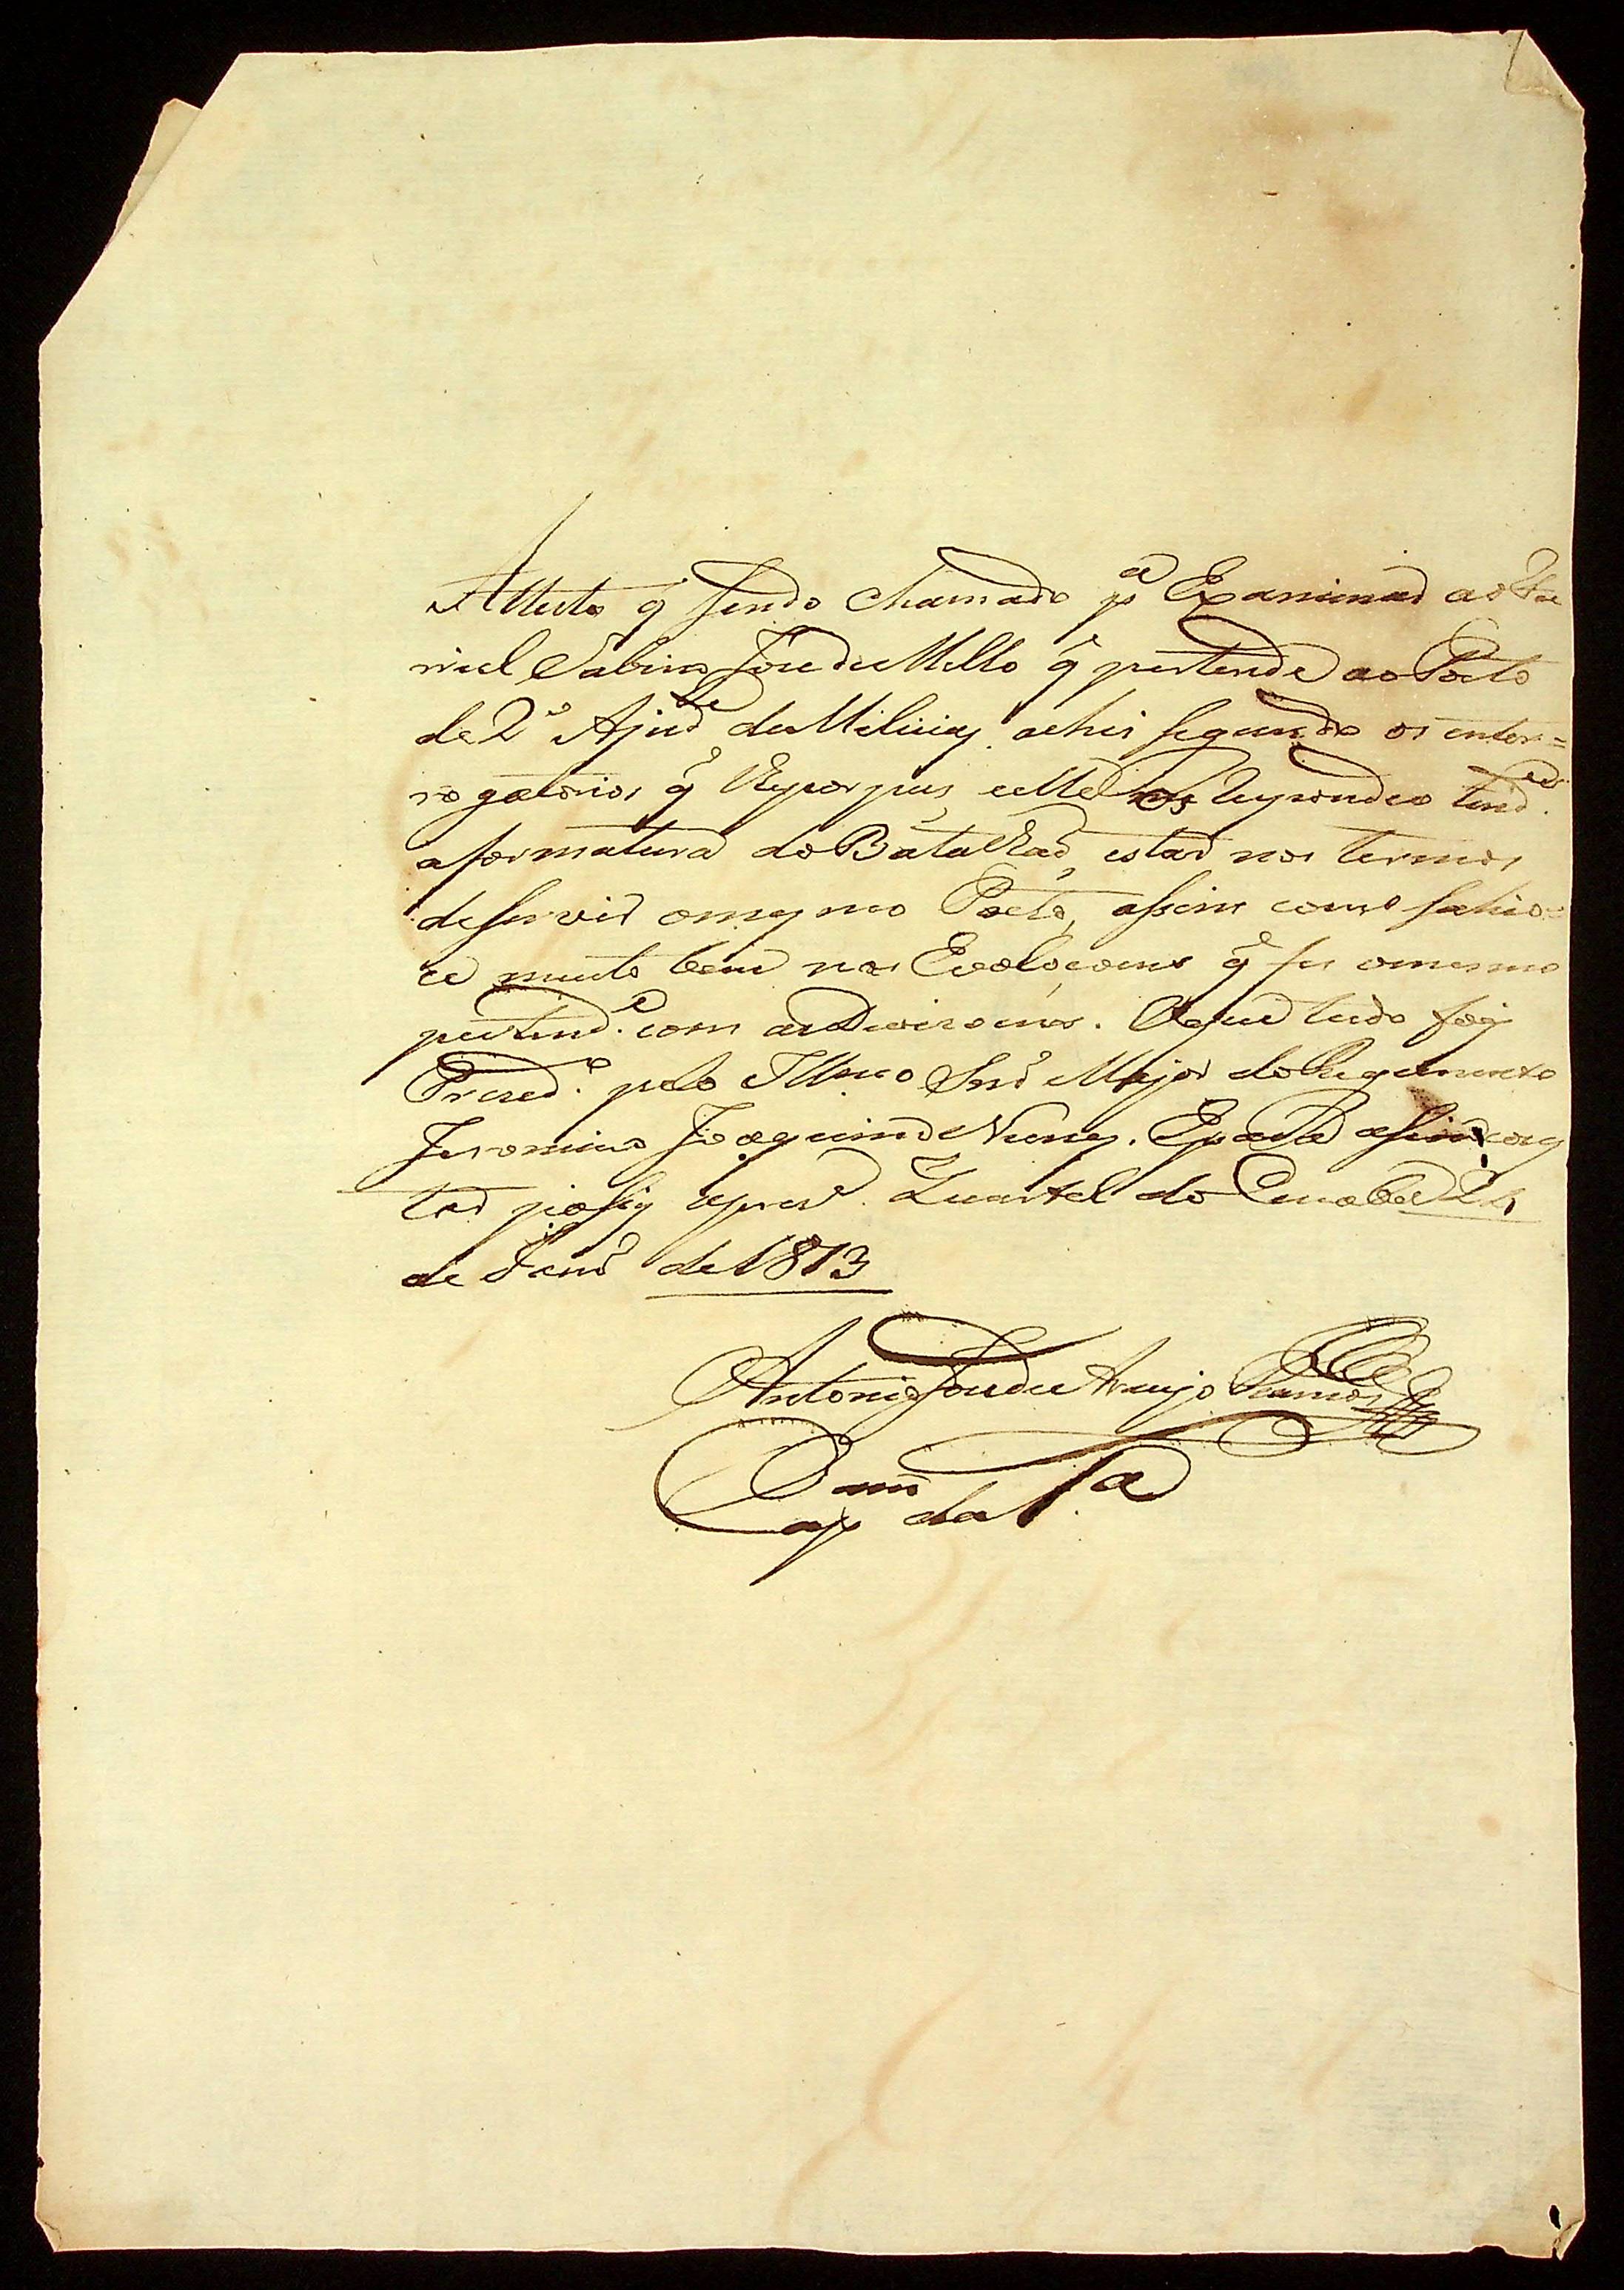 Attesto q̃ sendo chamado pª Examinar ao Fur
riel Sabino Jose de Mello q̃ pertende ao Posto
de 2º Ajudᵉ de Milicias achei segundo os inter=
rogatorios q̃ lhe propus, e elle os respondeo tendᵉˢ
a formatura do Batalhaõ, estar nos termos
de servir o mesmo Posto, assim como sahio=
ce muito bem nas Evoloçoens q̃ fes o mesmo
pertendᵉ com as Divizoens. O que tudo foi
Prezedº pelo Illmo Snr Major do Regimento
Jeronimo Joaquim Nunes. E para assim cons
tar pasei a prezᵉ. Quartel do 24
de Janrº de 1813
Antonio Jose de Araujo Ramos
Capᵐ da 1ª